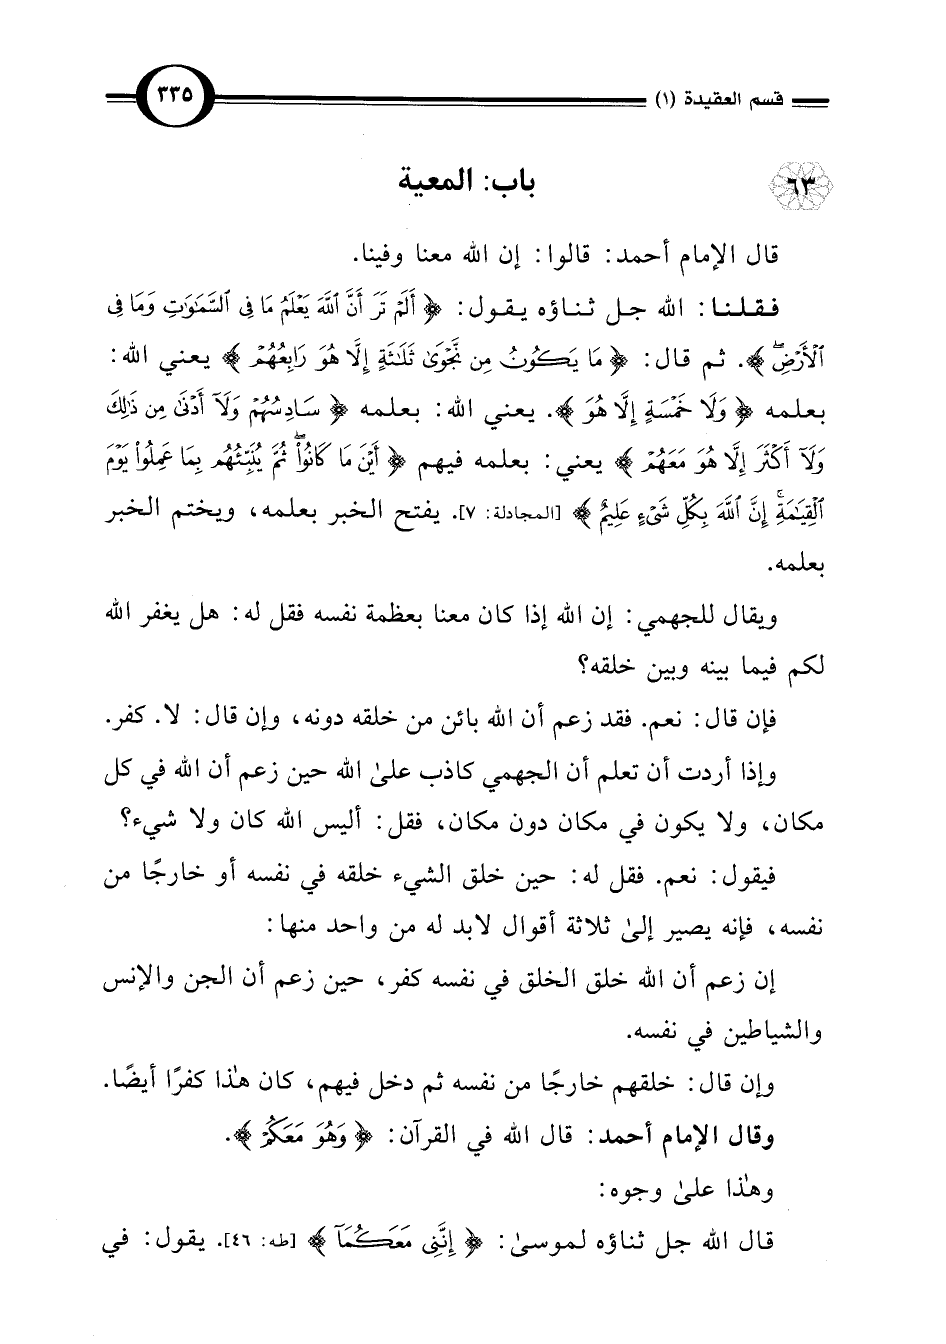 قسم العقيدة (١)
٣٣٥
٦٣ باب: المعية
قال الإمام أحمد: قالوا: إن الله معنا وفينا.
فقلنا: الله جل ثناؤه يقول: ﴿أَلَمْ تَرَ أَنَّ ٱللَّهَ يَعْلَمُ مَا فِى ٱلسَّمَٰوَٰتِ وَمَا فِى
ٱلْأَرْضِ ۖ﴾. ثم قال: ﴿مَا يَكُونُ مِن نَّجْوَىٰ ثَلَٰثَةٍ إِلَّا هُوَ رَابِعُهُمْ﴾ يعني الله:
بعلمه ﴿وَلَا خَمْسَةٍ إِلَّا هُوَ﴾. يعني الله: بعلمه ﴿سَادِسُهُمْ وَلَآ أَدْنَىٰ مِن ذَٰلِكَ
وَلَآ أَكْثَرَ إِلَّا هُوَ مَعَهُمْ﴾ يعني: بعلمه فيهم ﴿أَيْنَ مَا كَانُوا۟ ۖ ثُمَّ يُنَبِّئُهُم بِمَا عَمِلُوا۟ يَوْمَ
ٱلْقِيَٰمَةِ ۚ إِنَّ ٱللَّهَ بِكُلِّ شَىْءٍ عَلِيمٌ﴾ [المجادلة: ٧]. يفتح الخبر بعلمه، ويختم الخبر
بعلمه.
ويقال للجهمي: إن الله إذا كان معنا بعظمة نفسه فقل له: هل يغفر الله
لكم فيما بينه وبين خلقه؟
فإن قال: نعم. فقد زعم أن الله بائن من خلقه دونه، وإن قال: لا. كفر.
وإذا أردت أن تعلم أن الجهمي كاذب علىٰ الله حين زعم أن الله في كل
مكان، ولا يكون في مكان دون مكان، فقل: أليس الله كان ولا شيء؟
فيقول: نعم. فقل له: حين خلق الشيء خلقه في نفسه أو خارجًا من
نفسه، فإنه يصير إلىٰ ثلاثة أقوال لابد له من واحد منها:
إن زعم أن الله خلق الخلق في نفسه كفر، حين زعم أن الجن والإنس
والشياطين في نفسه.
وإن قال: خلقهم خارجًا من نفسه ثم دخل فيهم، كان هٰذا كفرًا أيضًا.
وقال الإمام أحمد: قال الله في القرآن: ﴿وَهُوَ مَعَكُمْ﴾.
وهٰذا علىٰ وجوه:
قال الله جل ثناؤه لموسىٰ: ﴿إِنَّنِى مَعَكُمَآ﴾ [طه: ٤٦]. يقول: في